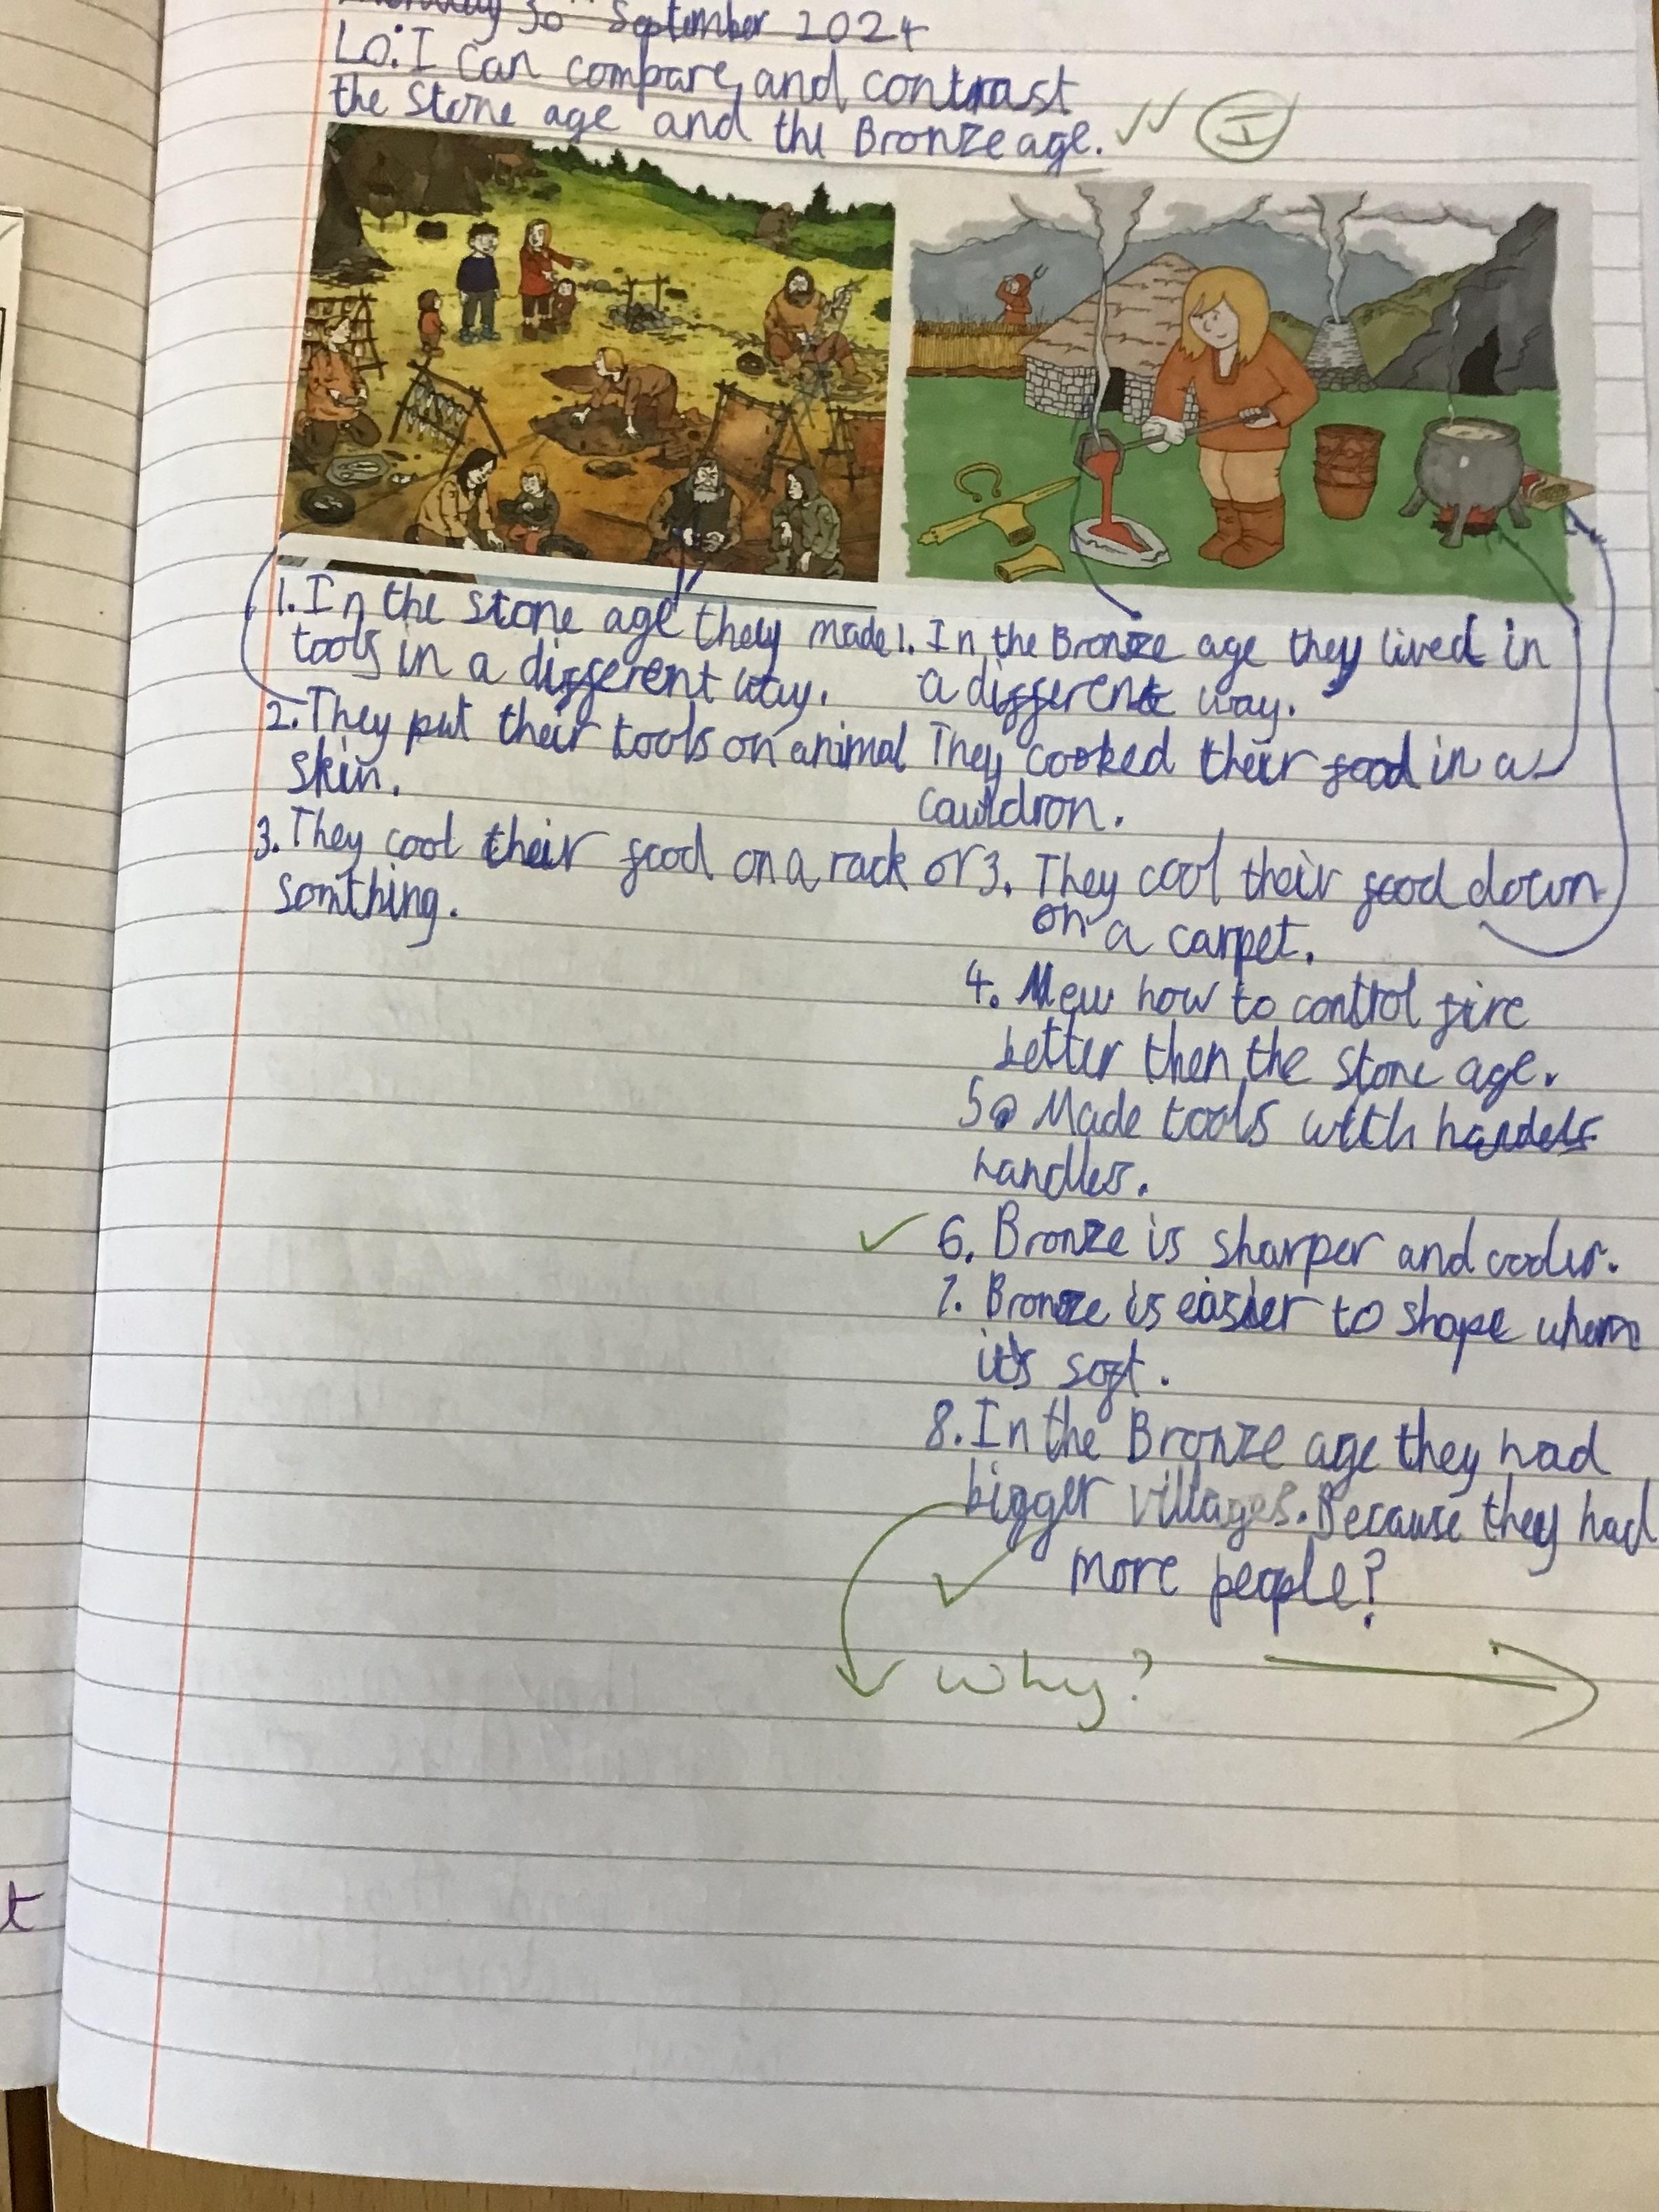 Monday 30th September 2024
Lo: I can compare and contrast
the Stone age and the Bronze age.
I
1. In the stone age they made
tools in a different way.
2. They put their tools on animal
skin.
3. They cool their food on a rack or
somthing.
1. In the Bronze age they lived in
a different way.
They cooked their food in a
cauldron.
3. They cool their food down
on a carpet.
4. how to control fire
better then the stone age.
5. Made tools with handels
handles.
6. Bronze is sharper and
7. Bronze is easier to shape when
it's soft.
8. In the Bronze age they had
bigger villages. Because they had
more people?
Why?
t